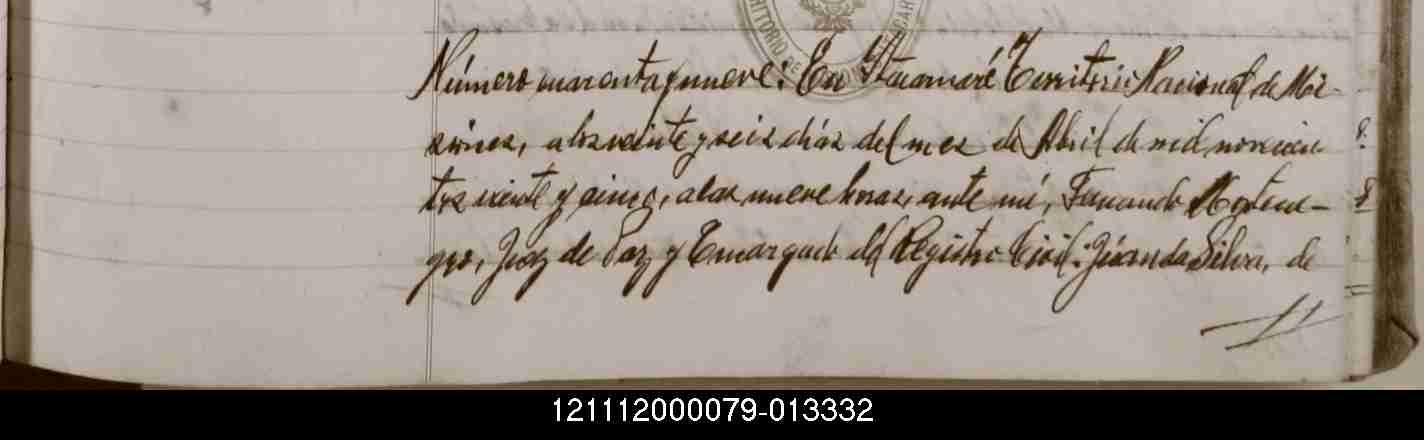 TERRITORIO DE
Número cuarenta y nueve: En Itacaruaré Territorio Nacional de Mi-
siones, a los veinte y seis días del mes de Abril de mil novecien
tos veinte y cinco, a las nueve horas, ante mí, Fernando Montene-
gro, Juez de Paz y Encargado del Registro Civil: Juan da Silva, de
121112000079-013332